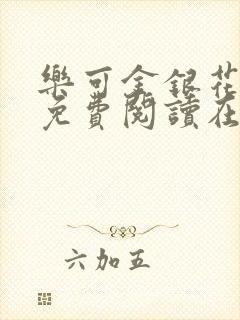 樂可金銀花
免費閱讀在
六加五